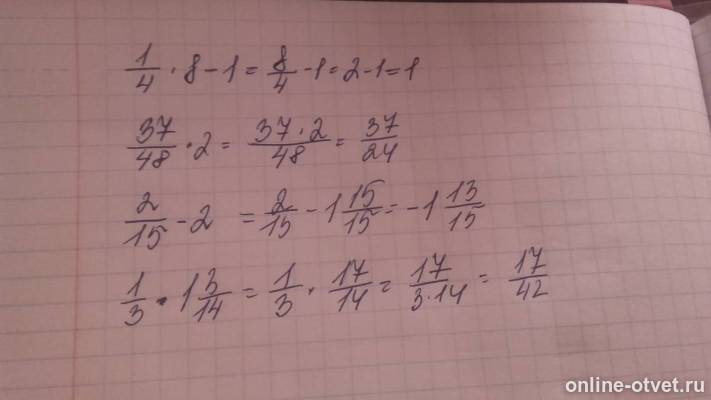 1/4 · 8 - 1 = 8/4 - 1 = 2 - 1 = 1
37/48 · 2 = 37·2/48 = 37/24
2/15 - 2 = 2/15 - 1 15/15 = -1 13/15
1/3 · 1 3/14 = 1/3 · 17/14 = 17/3·14 = 17/42
online-otvet.ru